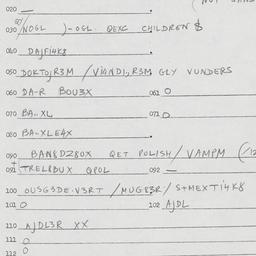 020 —
030 NOGL )-OGL QEXC CHILDREN $
040 DAJFI4K8
050 DOKTOJR3M / VIONDI,R3M GLY VUNDERS
060 DA-R BOU3X 061 O
070 BA..XL 071 O
080 BA-XLE4X
090 BAN8DZ80X QET POLISH / VAMPM
091 TREL8BUX QPOL 092 —
100 OUSG3DE.V3RT / MUG83R / S+MEXTI4K8
101 O 102 AJDL
110 AJDL3R XX
111 O
112 O